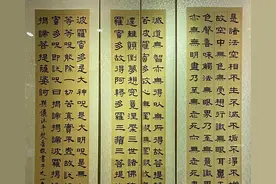 是諸法空相不生不滅不垢不淨不
故空中無色無受想行識無眼耳
色聲香味觸法無眼界乃至無意
亦無無明盡乃至
滅道無智亦無得以無所得故菩提
若波羅蜜多故心無罣礙無罣礙故
遠離顛倒夢想究竟涅槃三世諸佛
羅蜜多故得阿耨多羅三藐三菩提
波羅蜜多是大神咒是大明咒是無
等等咒能除一切苦真實不虛故說
羅蜜多咒即說咒曰揭諦揭諦波羅
揭諦菩提薩婆訶